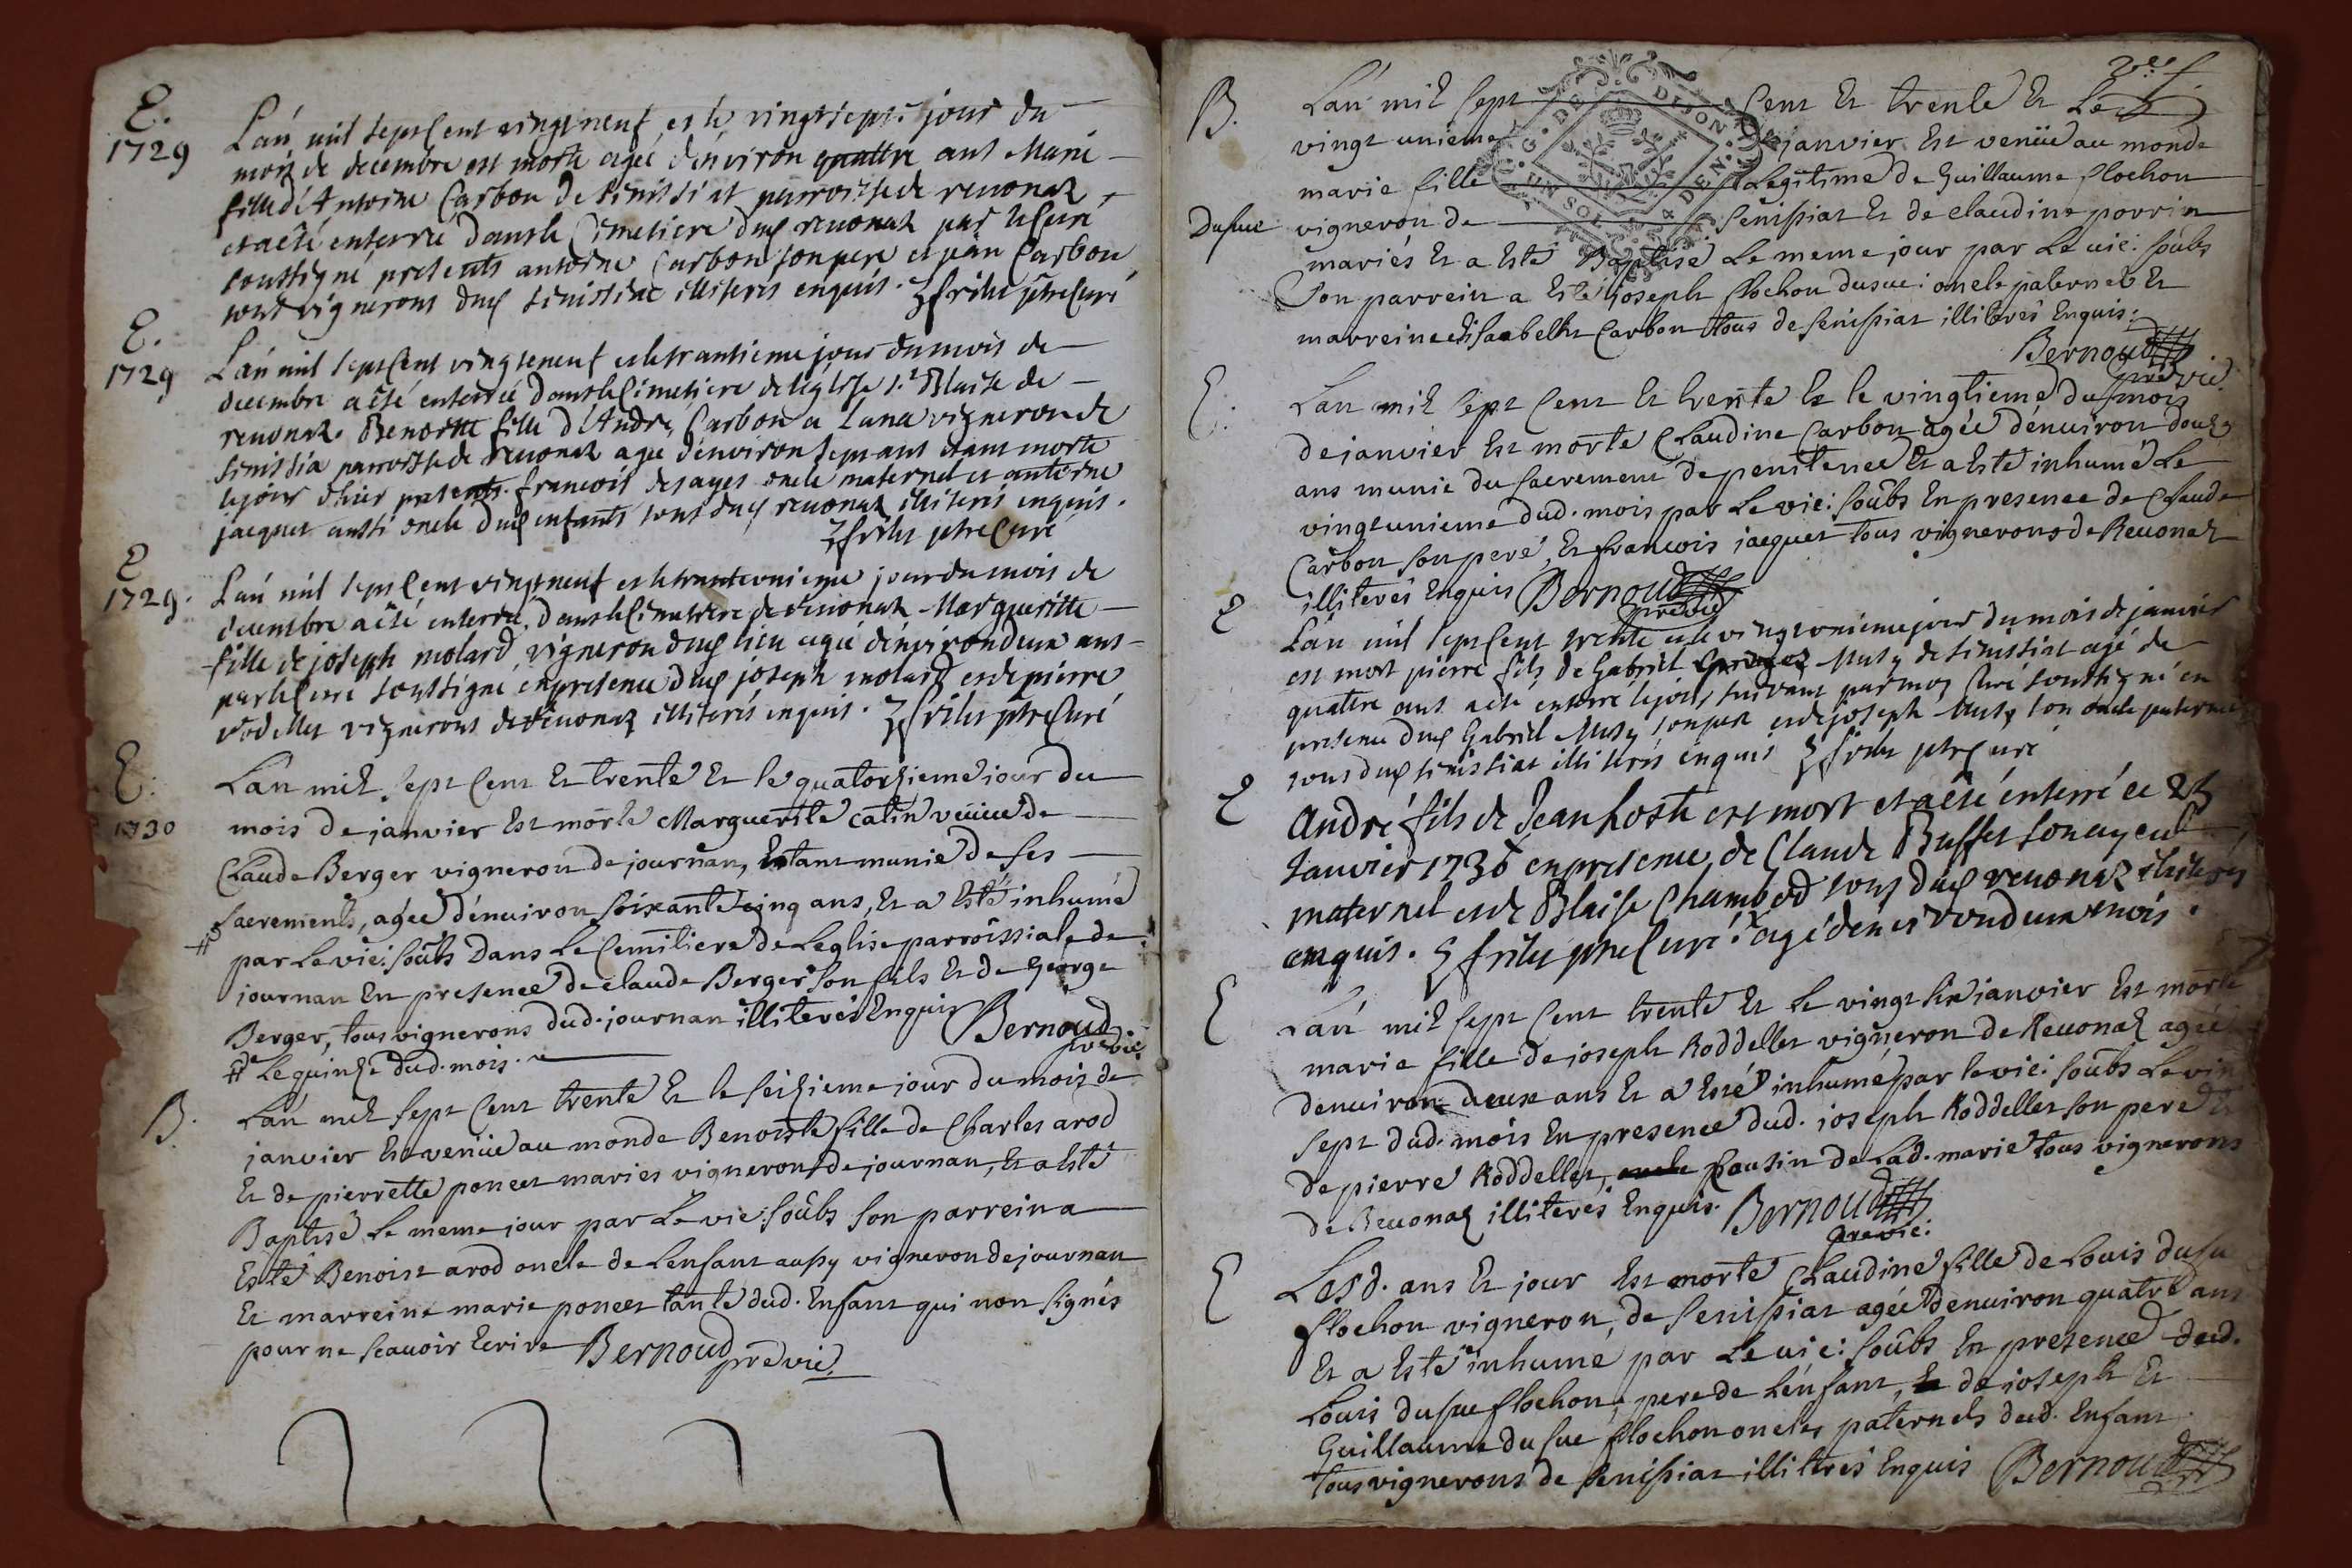 E.
1729
L'an mil sept cent vingt neuf et le vingt sept.e jour du
mois de decembre est morte agée d'environ quattre ans Marie
fille d'Antoine Carbon de Senissiat parroisse de revonaz
et a été enterrée dans le Cimetiere dud revonaz par le Curé
soussigné presents antoine Carbon son pere et jean Carbon
tous vignerons dud senissiat illiterés enquis. frilet ptre Curé
E.
1729
L'an mil sept cent vingt et neuf et le trantieme jour du mois de
decembre a été enterrée dans le Cimetiere de l'eglise St Blaise de
revonaz. Benoitte fille d'André Carbon a Lana vigneron de
senissia parroisse de revonaz agée d'environ sept ans etant morte
le jour d'hier presents. francois desayes oncle maternel et antoine
jacquet aussi oncle dud enfants tous dud revonaz illiterés enquis.
frilet ptre Curé
E
1729.
L'an mil sept cent vingt neuf et le trante unieme jour du mois de
decembre a été enterrée dans le Cimetiere de revonaz Margueritte
fille de joseph molard vigneron dud lieu agée d'environ deux ans
par le Curé soussigné en presence dud joseph molard et de pierre
rodellet vignerons de revonaz illiterés enquis. frilet ptre Curé
E.
1730
L'an mil sept Cent Et trente Et le quatorzieme jour du
mois de janvier Est morte Marguerite catin veüve de
Claude Berger vigneron de journan, Estant munie de ses
sacrements, agée d'enuiron soixante cinq ans, Et a Esté inhumé
# par le vic: soubs Dans Le Cemitiere de Leglise parroissiale de
journan En presence de claude Berger son fils Et de George
Berger, tous vignerons dud. journan illiterés Enquis Bernoud
pre vic
# Le quinze dud. mois.
B.
L'an mil sept Cent trente Et le seizieme jour du mois de
janvier Est venüe au monde Benoiste fille de Charles arod
Et de pierrette poncet mariés vignerons de journan, Et a Esté
Baptisé Le meme jour par Le vic: soubs son parrein a
Esté Benoist arod oncle de Lenfant aussy vigneron de journan
Et marreine marie poncet tante dud. Enfant qui non signés
pour ne scavoir Ecrire Bernoud pre vic
2e f
B.
L'an mil sept Cent Et trente Et Le
vingt unieme janvier Est venüe au monde
marie fille Legitime de Guillaume flochon
Dusuc
vigneron de senissiat Et de claudine perrin
mariés Et a Esté Baptisé Le meme jour par Le vic: soubs
Son parrein a Esté joseph flochon dusuc: oncle paternel Et
marreine Elisabelle Carbon tous de senissiat illiterés Enquis:
Bernoud
pre vic
G. DE DIJON
UN SOL 4 DEN.
E.
L'an mil sept Cent Et trente Et le vingtieme du mois
de janvier Est morte Claudine Carbon agée d'enuiron douze
ans munie du sacrement de penitence Et a Esté inhumé Le
vingt unieme dud. mois par Le vic: soubs En presence de Claude
Carbon son pere, Et francois jacquet tous vignerons de Revonaz
illiterés Enquis Bernoud
pre vic
E
L'an mil sept cent trente et le vingt unieme jour du mois de janvier
est mort pierre fils de Gabriel Musy de senissiat agé de
quattre ans a été enterré le jour suivant par moy Curé soussigné en
presence dud Gabriel Musy son pere et de joseph Musy son oncle paternel
tous dud senissiat illiterés enquis frilet ptre Curé
E
André fils de Jean hoste est mort et a été enterré ce 25
Janvier 1730 en presence de Claude Buffet son ayeul
maternel et de Blaise Chambod tous dud revonaz illiterés
enquis. frilet ptre Curé. x agé d'environ deux mois.
E
L'an mil sept Cent trente Et Le vingt six janvier Est morte
marie fille de joseph Roddellet vigneron de Revonaz agée
d'enuiron deux ans Et a Esté inhumé par le vic: soubs Le vin
sept dud. mois En presence dud. joseph Roddellet son pere Et
de pierre Roddellet, Cousin de Lad. marie tous vignerons
de Revonaz illiterés Enquis. Bernoud
pre vic:
E
Lesd. ans Et jour Est morte Claudine fille de Louis dusu
flochon vigneron, de senissiat agée d'enuiron quatre ans
Et a Esté inhume par Le vic: soubs En presence dud.
Louis dusuc flochon, pere de L'enfant, de joseph Et
Guillaume dusuc flochon oncles paternels dud. Enfant
tous vignerons de senissiat illiterés Enquis Bernoud